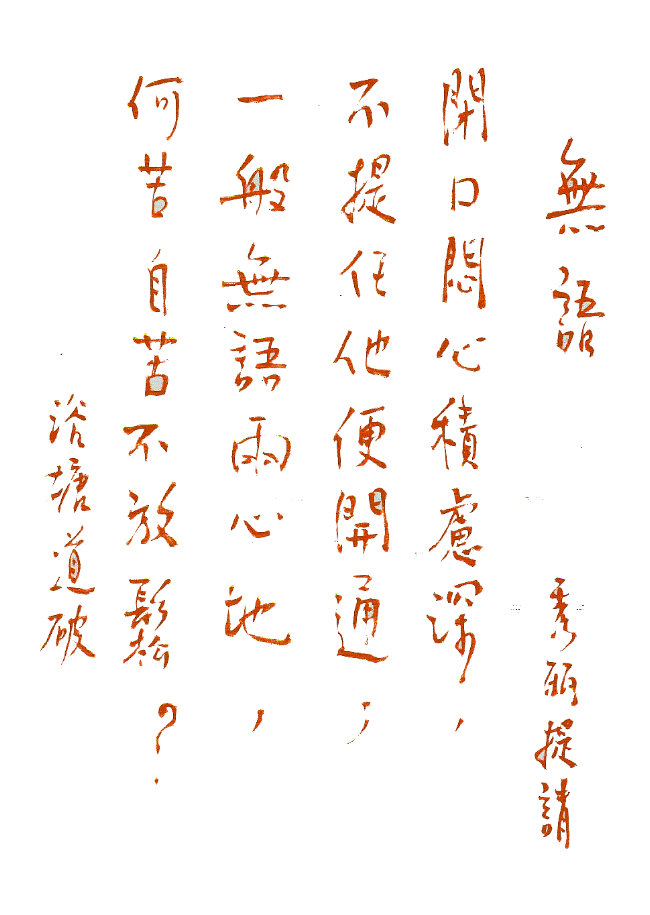 無語
秀 提請
閉口悶心積慮深，
不提任他便開通；
一般無語兩心地，
何苦自苦不放鬆？
浴塘道破